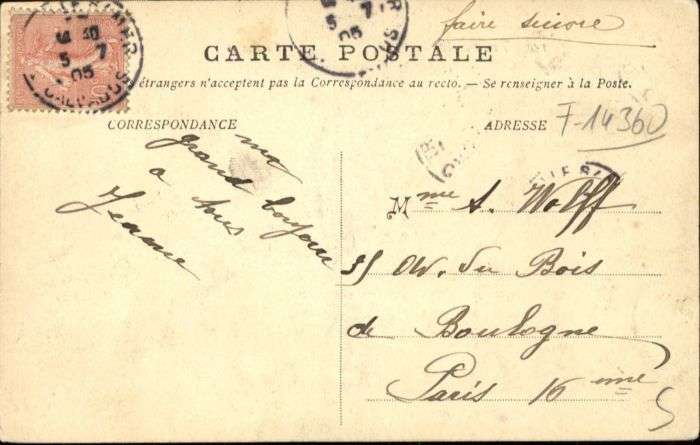 faire suivre
CARTE POSTALE
étrangers n'acceptent pas la Correspondance au recto. — Se renseigner à la Poste.
CORRESPONDANCE
ADRESSE
F-14360
ma
grand bonjour
a tous
Jeanne
Mme A. Wolff
35 av. du Bois
de Boulogne
Paris 16 eme
5 7
05
CALVADOS
5 7
05